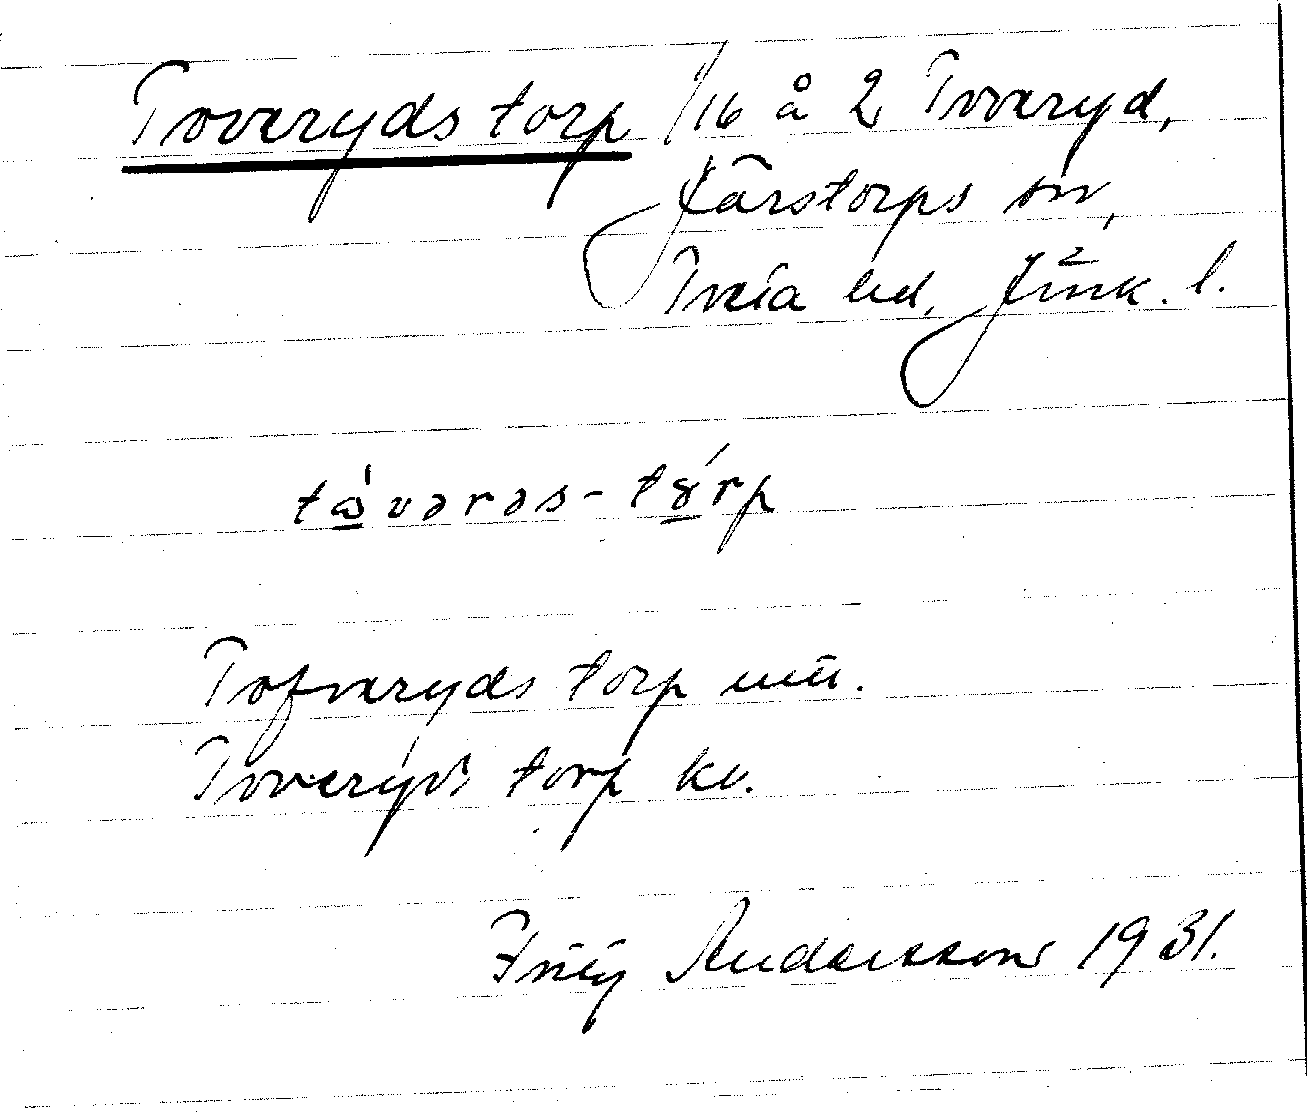 Tovaryds torp 1/16 å 2 Tovaryd,
Järstorps sn,
Tveta hd, Jönk. l.
tὼvərəs-tɤ́rp
Tofvaryds torp
Tovaryds torp
Andersson 1931.